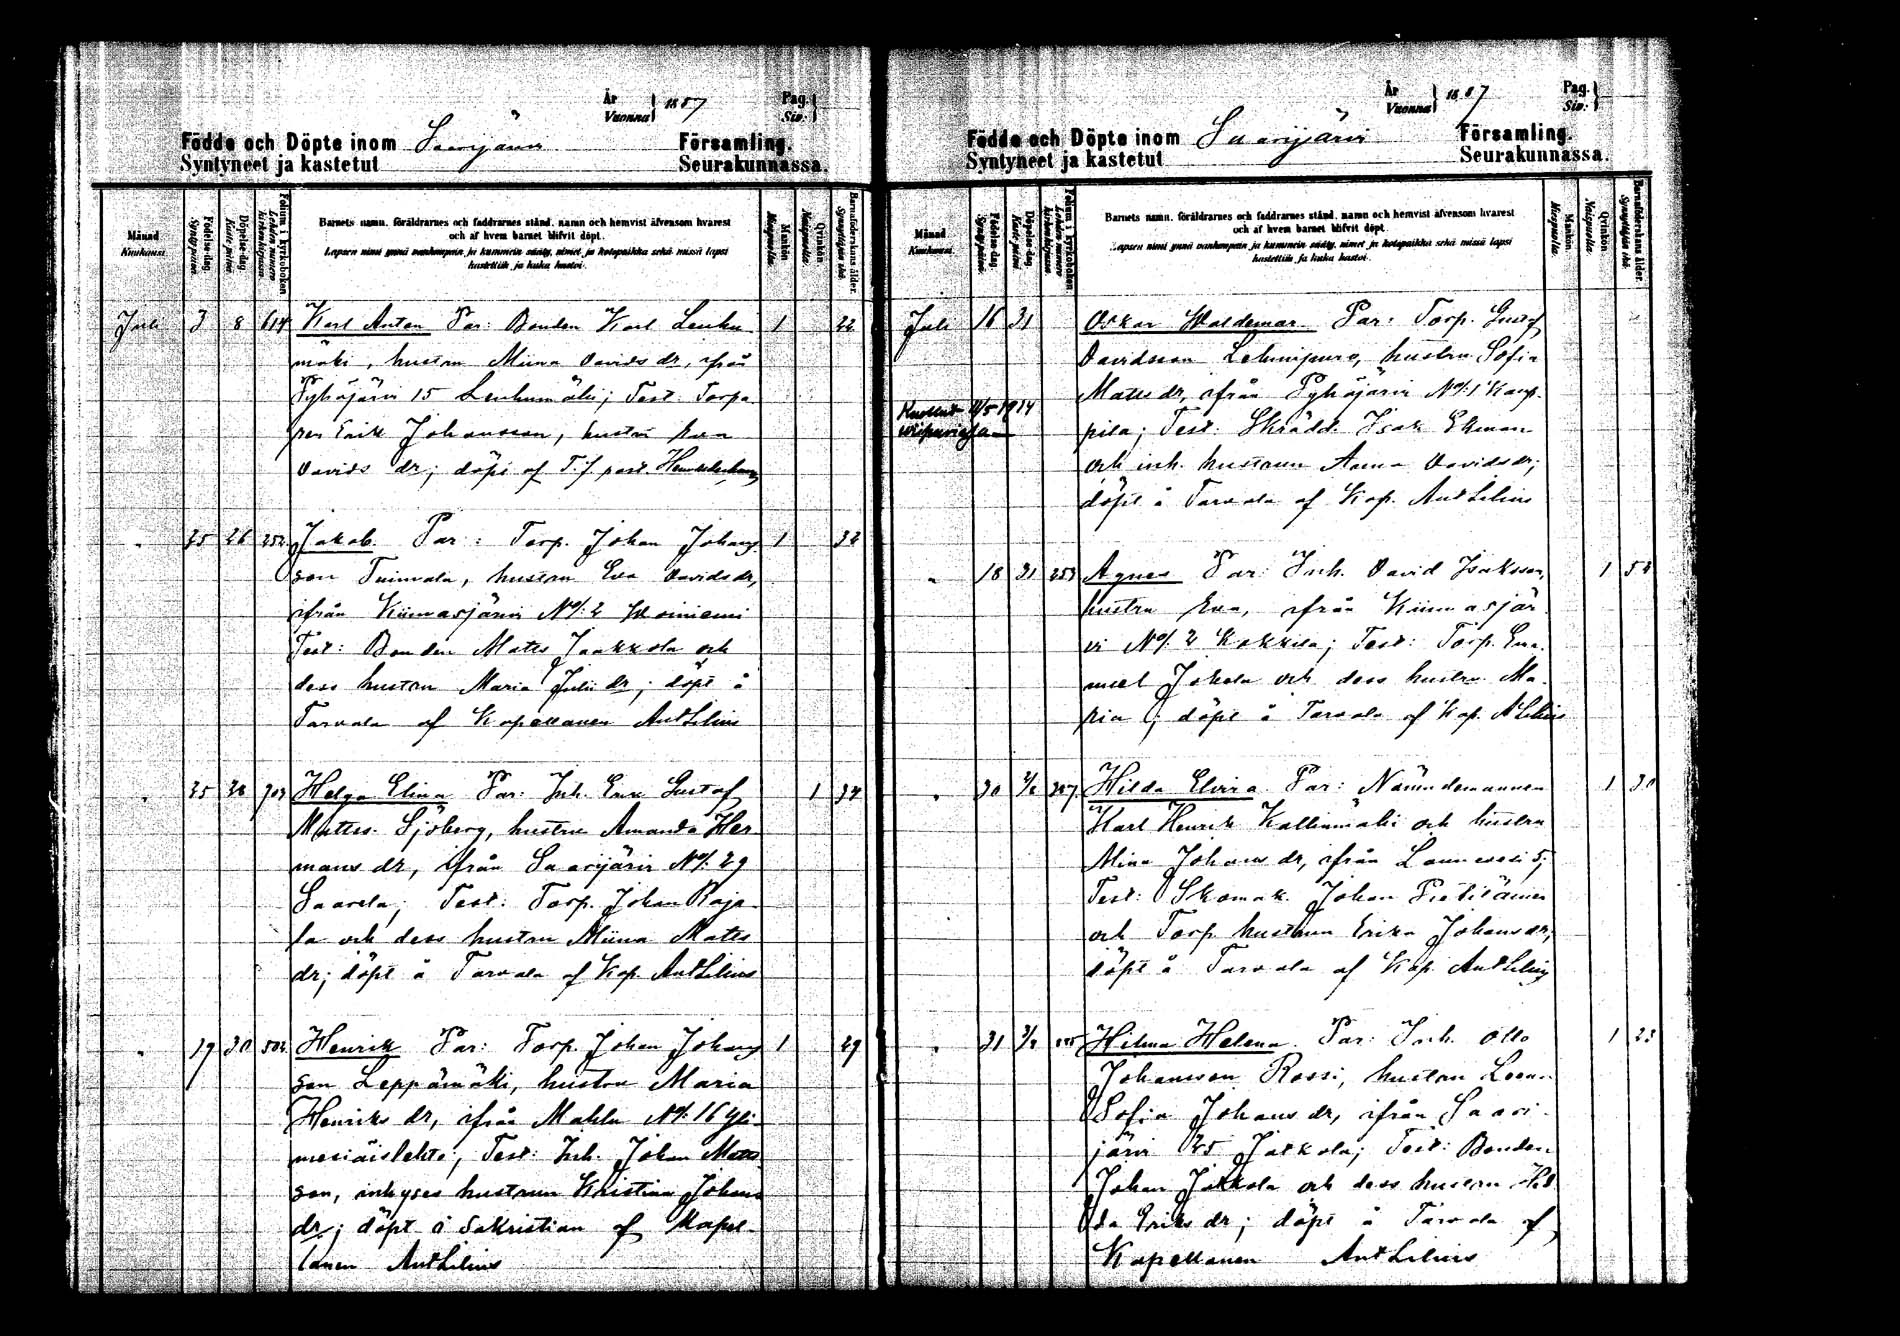 År
Vuonna } 1887
Pag.
Siv. }
Födde och Döpte inom Saarijärvi Församling.
Syntyneet ja kastetut Seurakunnassa.
Månad
Kuukausi
Födelse-dag
Syntypäivä
Döpelse-dag
Kaste-päivä
Folium i kyrkoboken
Lehden numero kirkonkirjassa
Barnets namn, föräldrarnes och faddrarnes stånd, namn och hemvist äfvensom hvarest
och af hvem barnet blifvit döpt.
Lapsen nimi ynnä vanhempain ja kummein sääty, nimet ja kotopaikka sekä missä lapsi
kastettiin ja kuka kastoi.
Mankön
Miespuolia
Qvinkön
Naispuolia
Barnaföderskans ålder.
Synnyttäjän ikä.
Juli 3 8 614 Karl Anton Par: Bonden Karl Leuhu- 1 22
mäki, hustru Miina Davids dr, ifrån
Pyhäjärvi 15 Leuhumäki; Test. Torpa-
ren Erik Johansson, hustru Eva
Davids dr; döpt af T.f. past.
" 25 26 252 Jakob. Par: Torp. Johan Johans- 1 32
son Tuimala, hustru Eva Davids dr,
ifrån Kiimasjärvi No/: 2
Test: Bonden Matts Jaakkola och
dess hustru Maria Julii dr; döpt å
Tarvala af Kapellanen Ant Lilius
" 25 28 703 Helga Elina Par: Inh. Erik Gustaf 1 34
Matts. Sjöberg, hustru Amanda Her-
mans dr, ifrån Saarijärvi No/: 29
Saarela; Test: Torp. Johan Raja-
la och dess hustru Miina Matts
dr; döpt å Tarvala af Kap. Ant Lilius
" 19 30 502 Henrik Par: Torp. Johan Johans- 1 29
son Leppämäki, hustru Maria
Henriks dr, ifrån Mahlu No/: 16 Yli-
mesiäislehto, Test: Inh. Johan Matts-
son, inhyses hustrun Kristina Johans
dr; döpt i Sakristian af Kapel-
lanen Ant Lilius
År
Vuonna } 1887
Pag.
Siv. }
Födde och Döpte inom Saarijärvi Församling.
Syntyneet ja kastetut Seurakunnassa.
Månad
Kuukausi
Födelse-dag
Syntypäivä
Döpelse-dag
Kaste-päivä
Folium i kyrkoboken.
Lehden numero kirkonkirjassa
Barnets namn, föräldrarnes och faddrarnes stånd, namn och hemvist äfvensom hvarest
och af hvem barnet blifvit döpt.
Lapsen nimi ynnä vanhempain ja kummein sääty, nimet ja kotopaikka sekä missä lapsi
kastettiin ja kuka kastoi.
Mankön
Miespuolia
Qvinkön
Naispuolia
Barnaföderskans ålder.
Synnyttäjän ikä.
Juli 16 31 Oskar Waldemar Par: Torp. Gustaf
Davidsson Lehmipuro, hustru Sofia
Matts dr, ifrån Pyhäjärvi No/: 1 Kamp-
Kuollut 11/5 1914
Wiipurissa
pila; Test: Skrädd. Isak Ekman
och inh. hustrun Anna Davids dr;
döpt å Tarvala af Kap. Ant Lilius
" 18 31 253 Agnes Par: Inh. David Isaksson, 1
hustru Eva, ifrån Kiimasjär-
vi No/: 2 Kokkila; Test: Torp. Ema-
nuel Jokela och dess hustru Ma-
ria; döpt å Tarvala af Kap. A Lilius
" 30 2/8 Hilda Elvira Par: Nämndemannen 1 30
Karl Henrik Kallinmäki och hustru
Mina Johans dr, ifrån Lannevesi 5;
Test: Skomak. Johan Pietiläinen
och Torp. hustrun Erika Johans dr,
döpt å Tarvala af Kap. Ant Lilius
" 31 Hilma Helena. Par: Inh. Otto 1 23
Johansson Rossi, hustru Loviisa
Sofia Johans dr, ifrån Saari-
järvi 25 Jakkola; Test: Bonden
Johan Jakkola och dess hustru Hil-
da Eriks dr; döpt å Tarvala af
Kapellanen Ant Lilius